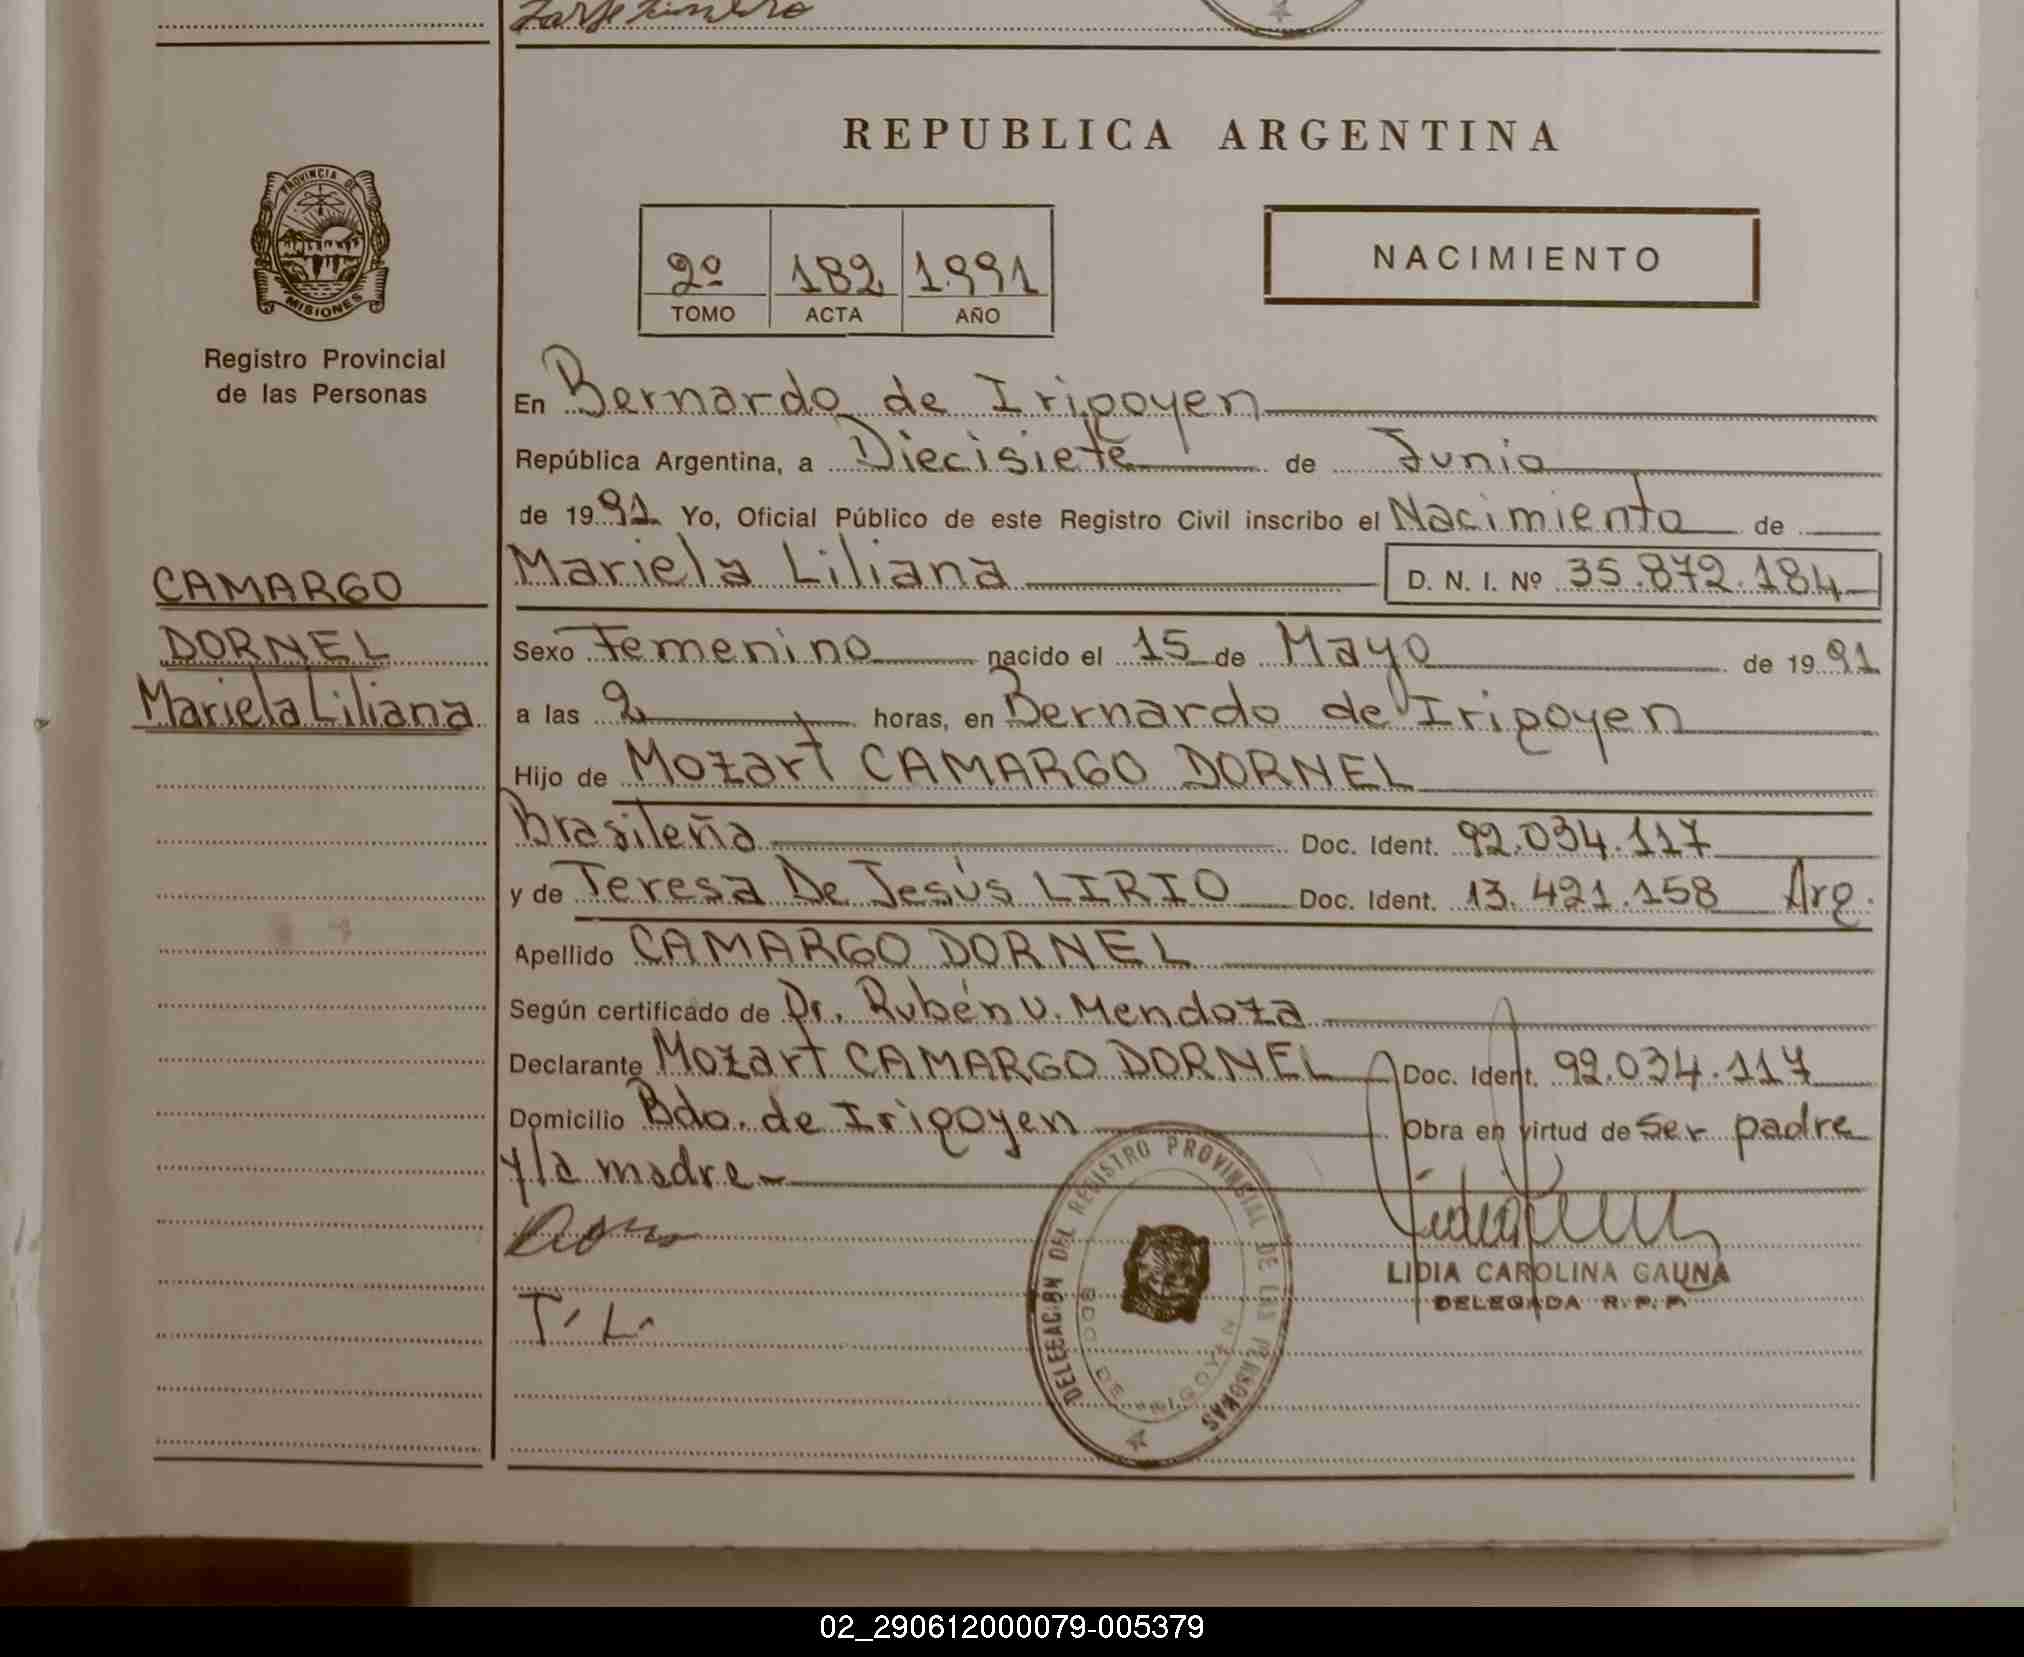 REPUBLICA ARGENTINA
PROVINCIA DE
MISIONES
Registro Provincial
de las Personas
2º 182 1.991
TOMO ACTA AÑO
NACIMIENTO
En Bernardo de Irigoyen
República Argentina, a Diecisiete de Junio
de 1991 Yo, Oficial Público de este Registro Civil inscribo el Nacimiento de
Mariela Liliana D. N. I. Nº 35.872.184
CAMARGO
DORNEL
Mariela Liliana
Sexo Femenino nacido el 15 de Mayo de 1991
a las 2 horas, en Bernardo de Irigoyen
Hijo de Mozart CAMARGO DORNEL
Brasileña Doc. Ident. 92.034.117
y de Teresa De Jesús LIRIO Doc. Ident. 13.421.158 Arg.
Apellido CAMARGO DORNEL
Según certificado de Dr. Rubén v. Mendoza
Declarante Mozart CAMARGO DORNEL Doc. Ident. 92.034.117
Domicilio Bdo. de Irigoyen Obra en virtud de ser padre
y la madre
T. L.
DELEGACION DEL REGISTRO PROVINCIAL DE LAS PERSONAS
BDO. DE IRIGOYEN
LIDIA CAROLINA GAUNA
DELEGADA R. P. P.
02_290612000079-005379